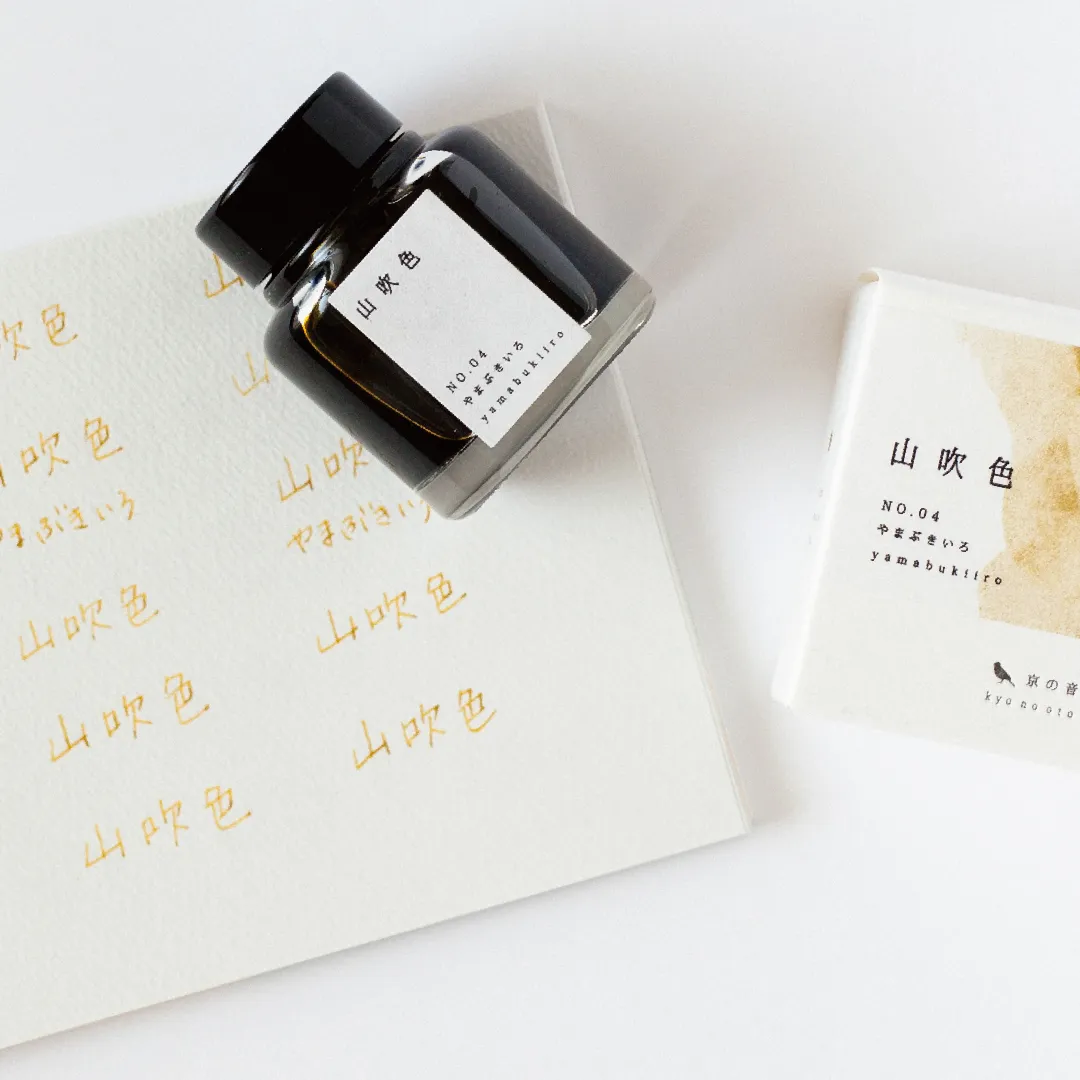 山吹色
NO.04
やまぶきいろ
yamabukiiro
山吹色
NO.04
やまぶきいろ
yamabukiiro
京の音
kyo no oto
山
吹色
山
山吹色
山吹
まぶきいろ
やまぶきい
山吹色
山吹色
山吹色
山吹色
山吹色